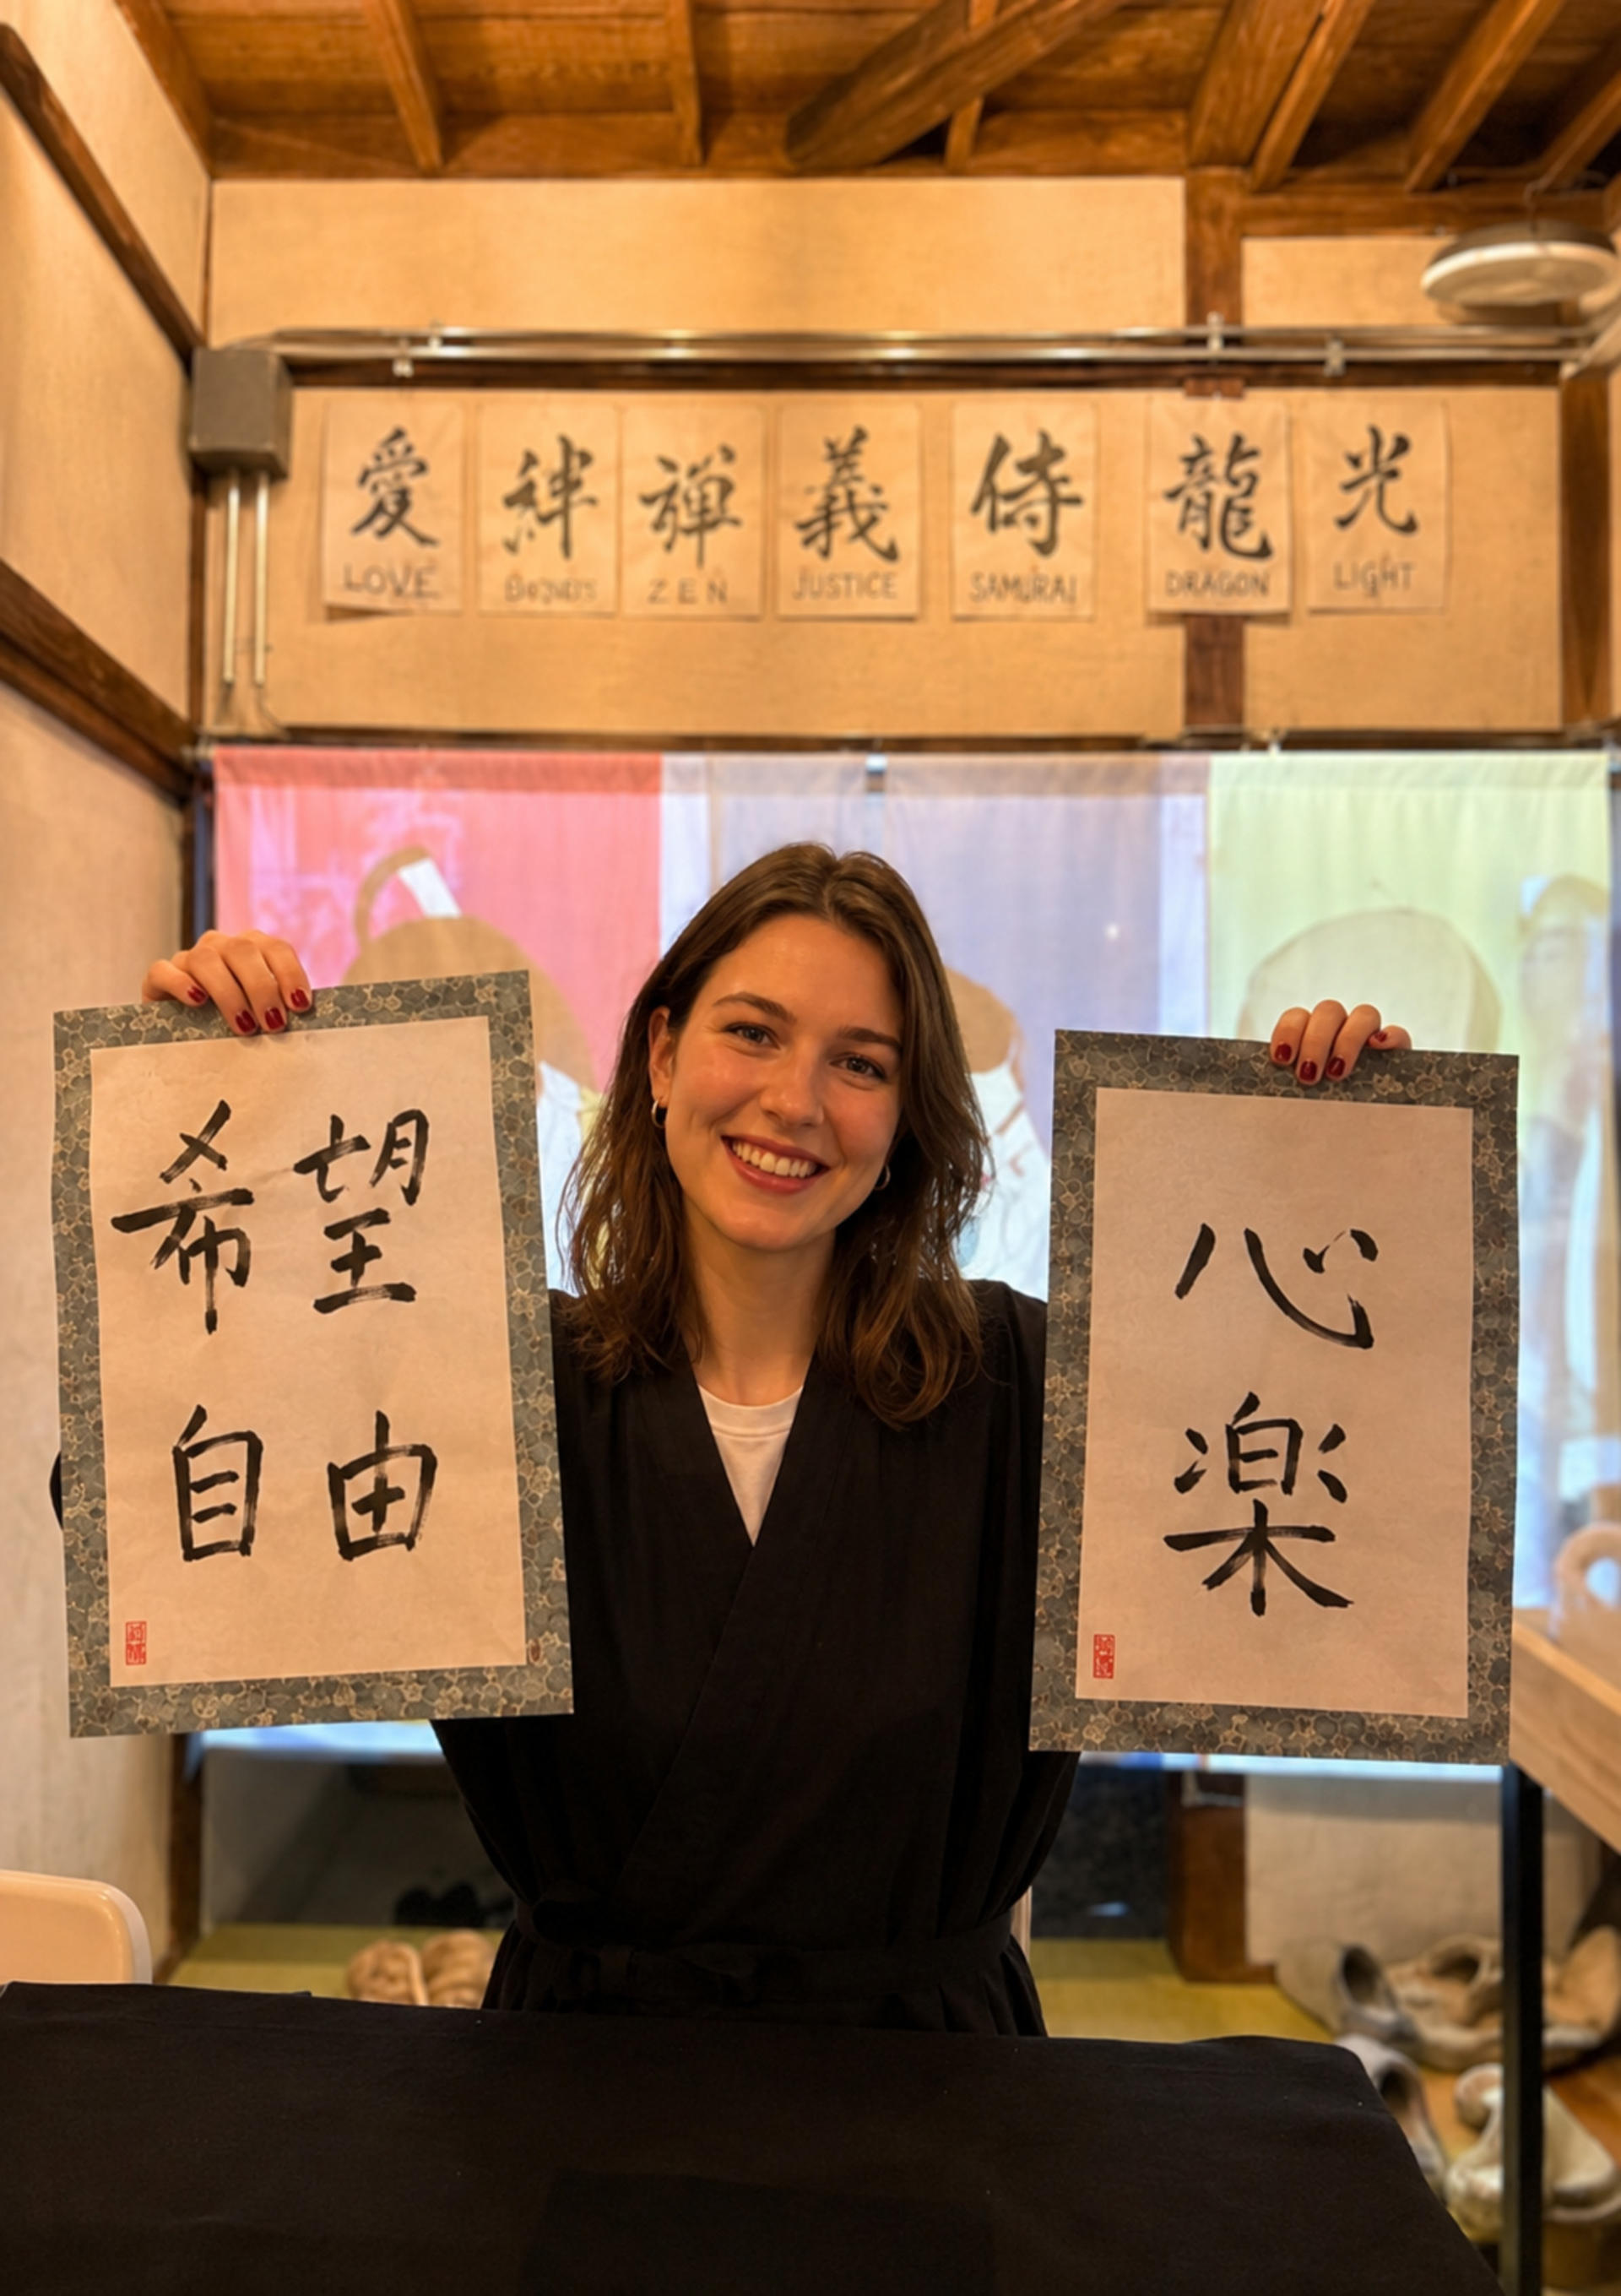 愛
LOVE
絆
禅
ZEN
義
JUSTICE
侍
SAMURAI
龍
DRAGON
光
LIGHT
希望
自由
心
楽